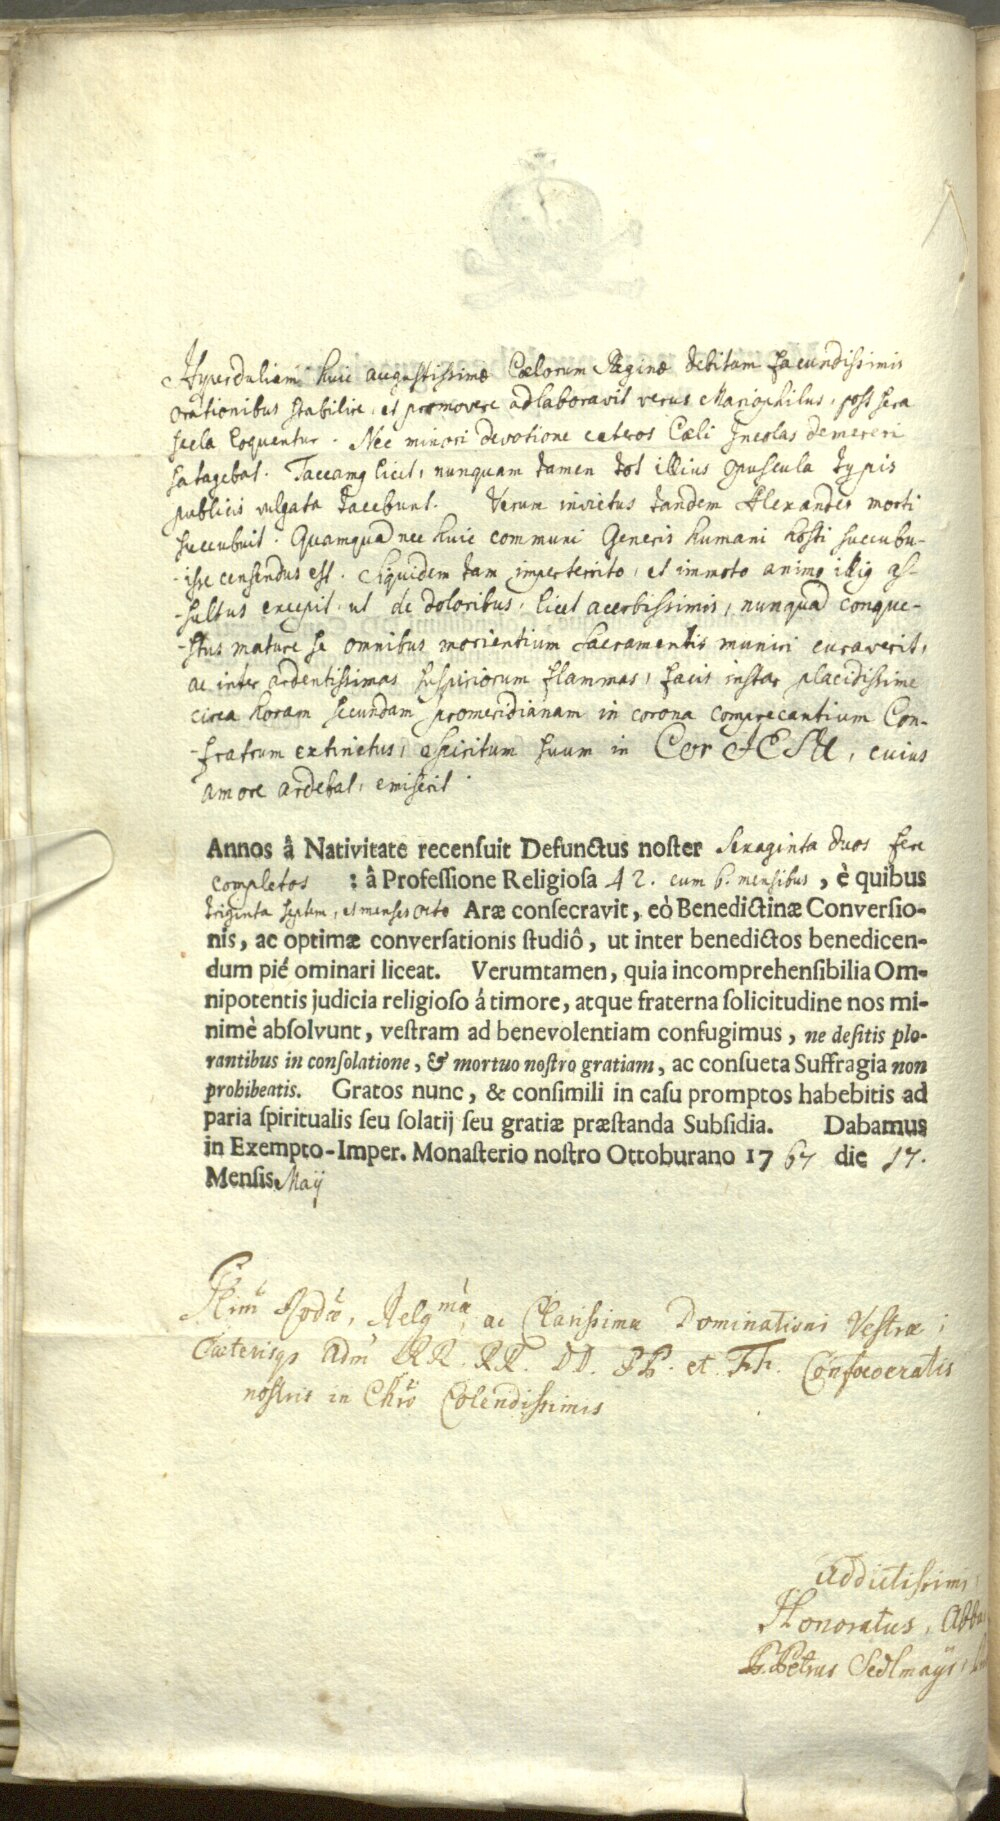 Hyperduliam huic augustissimæ Cælorum Reginæ debitam facundissimis
orationibus stabilire, et promovere adlaboravit verus Mariophilus, post sera
sæcla loquentur. Nec minori devotione cæteros Cæli Incolas demereri
satagebat. Taceamq licet, nunquam tamen tot illius opuscula typis
publicis vulgata tacebunt. Verum invictus tandem Alexander morti
succubuit. Quamquã nec huic communi Generis humani hosti succubu-
-isse censendus est. Siquidem tam imperterrito, et immoto animo illiq as-
-sultus excepit, ut de doloribus, licet acerbissimis, nunquã conque-
-stus mature se omnibus morientium Sacramentis muniri curaverit,
ac inter ardentissimas suspiriorum flammas, facis instar placidissime
circa horam secundam promeridianam in corona comprecantium Con-
-fratrum extinctus, spiritum suum in Cor JESU, cuius
amore ardebat, emiserit.
Annos â Nativitate recensuit Defunctus noster sexaginta duos fere
completos : â Professione Religiosa 42. cum 6. mensibus, è quibus
triginta septem, et menses octo Aræ consecravit, eò Benedictinæ Conversio-
nis, ac optimæ conversationis studiô, ut inter benedictos benedicen-
dum piè ominari liceat. Verumtamen, quia incomprehensibilia Om-
nipotentis judicia religioso á timore, atque fraterna solicitudine nos mi-
nimè absolvunt, vestram ad benevolentiam confugimus, ne desitis plo-
rantibus in consolatione, & mortuo nostro gratiam, ac consueta Suffragia non
prohibeatis. Gratos nunc, & consimili in casu promptos habebitis ad
paria spiritualis seu solatij seu gratiæ præstanda Subsidia. Dabamus
in Exempto-Imper. Monasterio nostro Ottoburano 1767 die 17.
Mensis Maÿ
ac Clarissimæ Dominationi Vestræ;
Cæterisqs Adm RR. RR. DD. PP. et FF. Confoederatis
nostris in Chro Colendissimis
Addictissimi,
Honoratus,
P. Petrus Sedlmaÿr,